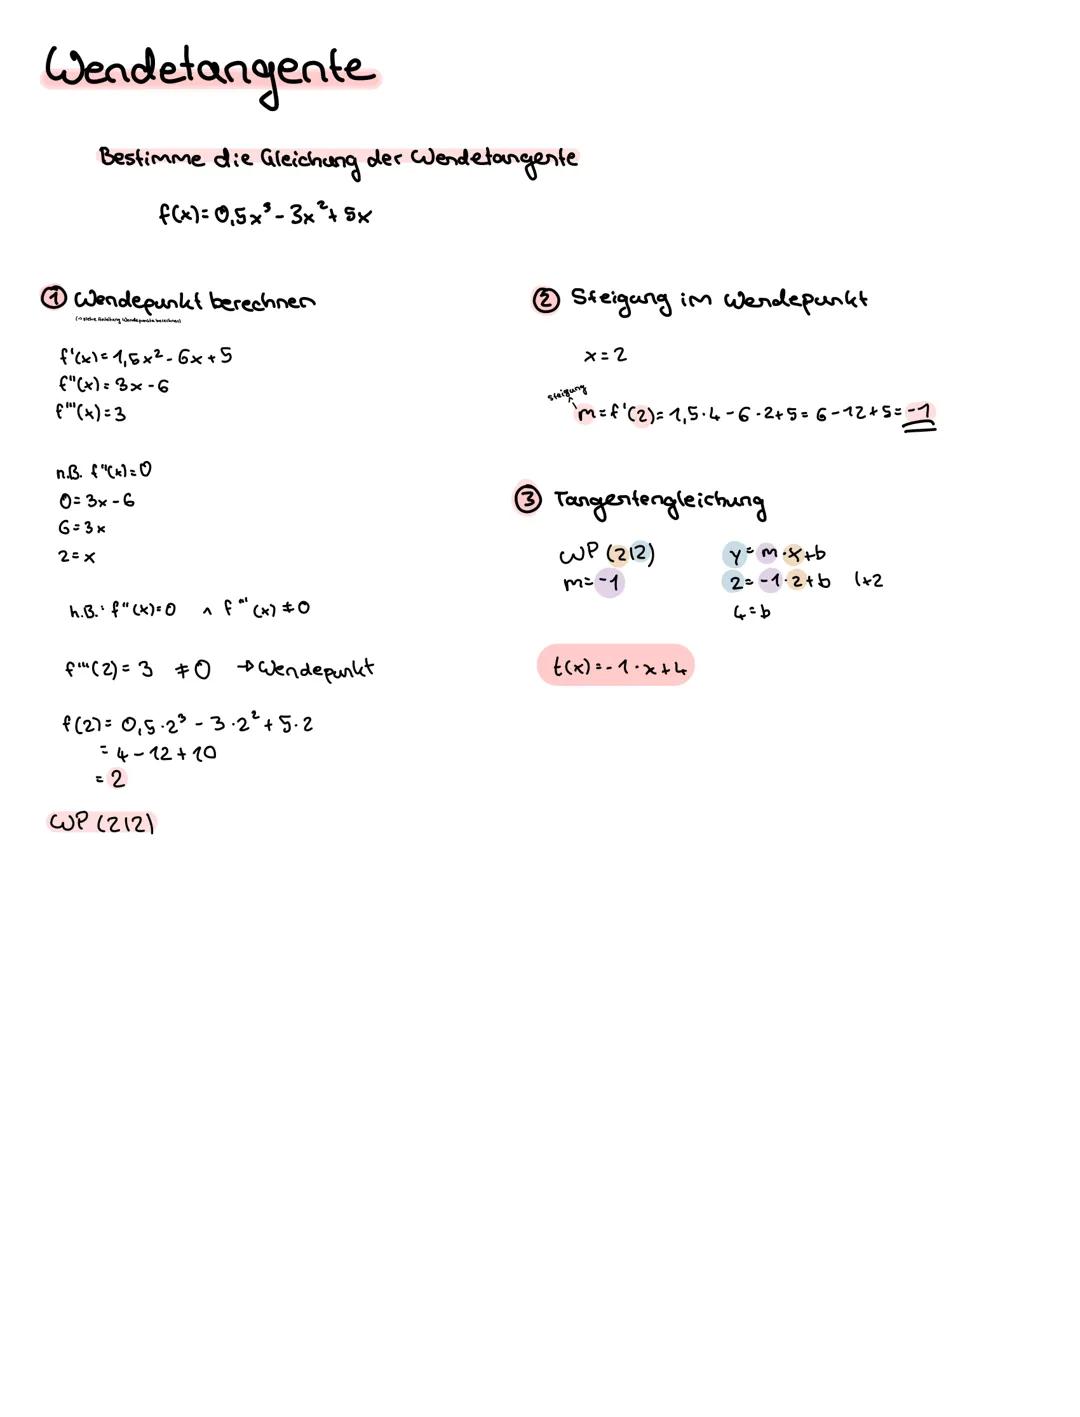 Wendetangente
Bestimme die Gleichung der Wendetangente
f(x)= 0,5x³ - 3x² + 5x
① Wendepunkt berechnen
(→ siehe Anleitung Wendepunkte berechnen)
f'(x) = 1,5x² - 6x + 5
f''(x) = 3x - 6
f'''(x) = 3
n.B. f''(x) = 0
0 = 3x - 6
6 = 3x
2 = x
h.B.: f''(x) = 0 ∧ f'''(x) ≠ 0
f'''(2) = 3 ≠ 0 → Wendepunkt
f(2) = 0,5·2³ - 3·2² + 5·2
= 4 - 12 + 10
= 2
WP (2|2)
② Steigung im Wendepunkt
x = 2
Steigung
m = f'(2) = 1,5·4 - 6·2 + 5 = 6 - 12 + 5 = -1
③ Tangentengleichung
WP (2|2) y = m·x + b
m = -1 2 = -1·2 + b |+2
4 = b
t(x) = -1·x + 4